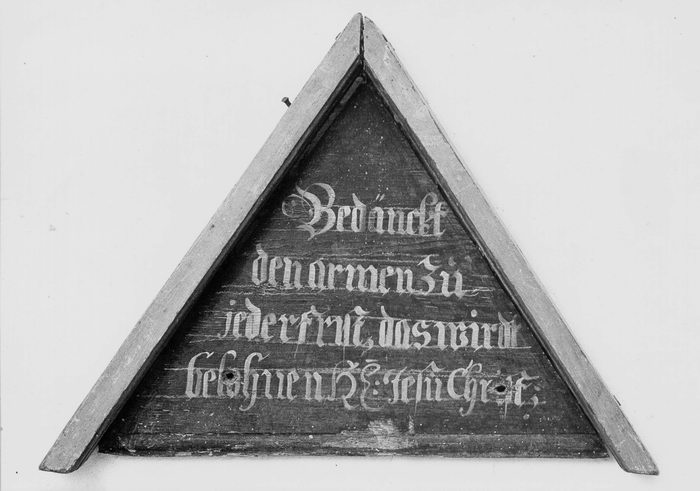 Bedänckt
den armen Zü
jeder frist, das wirdt
belohnen H: Jesu Christ;